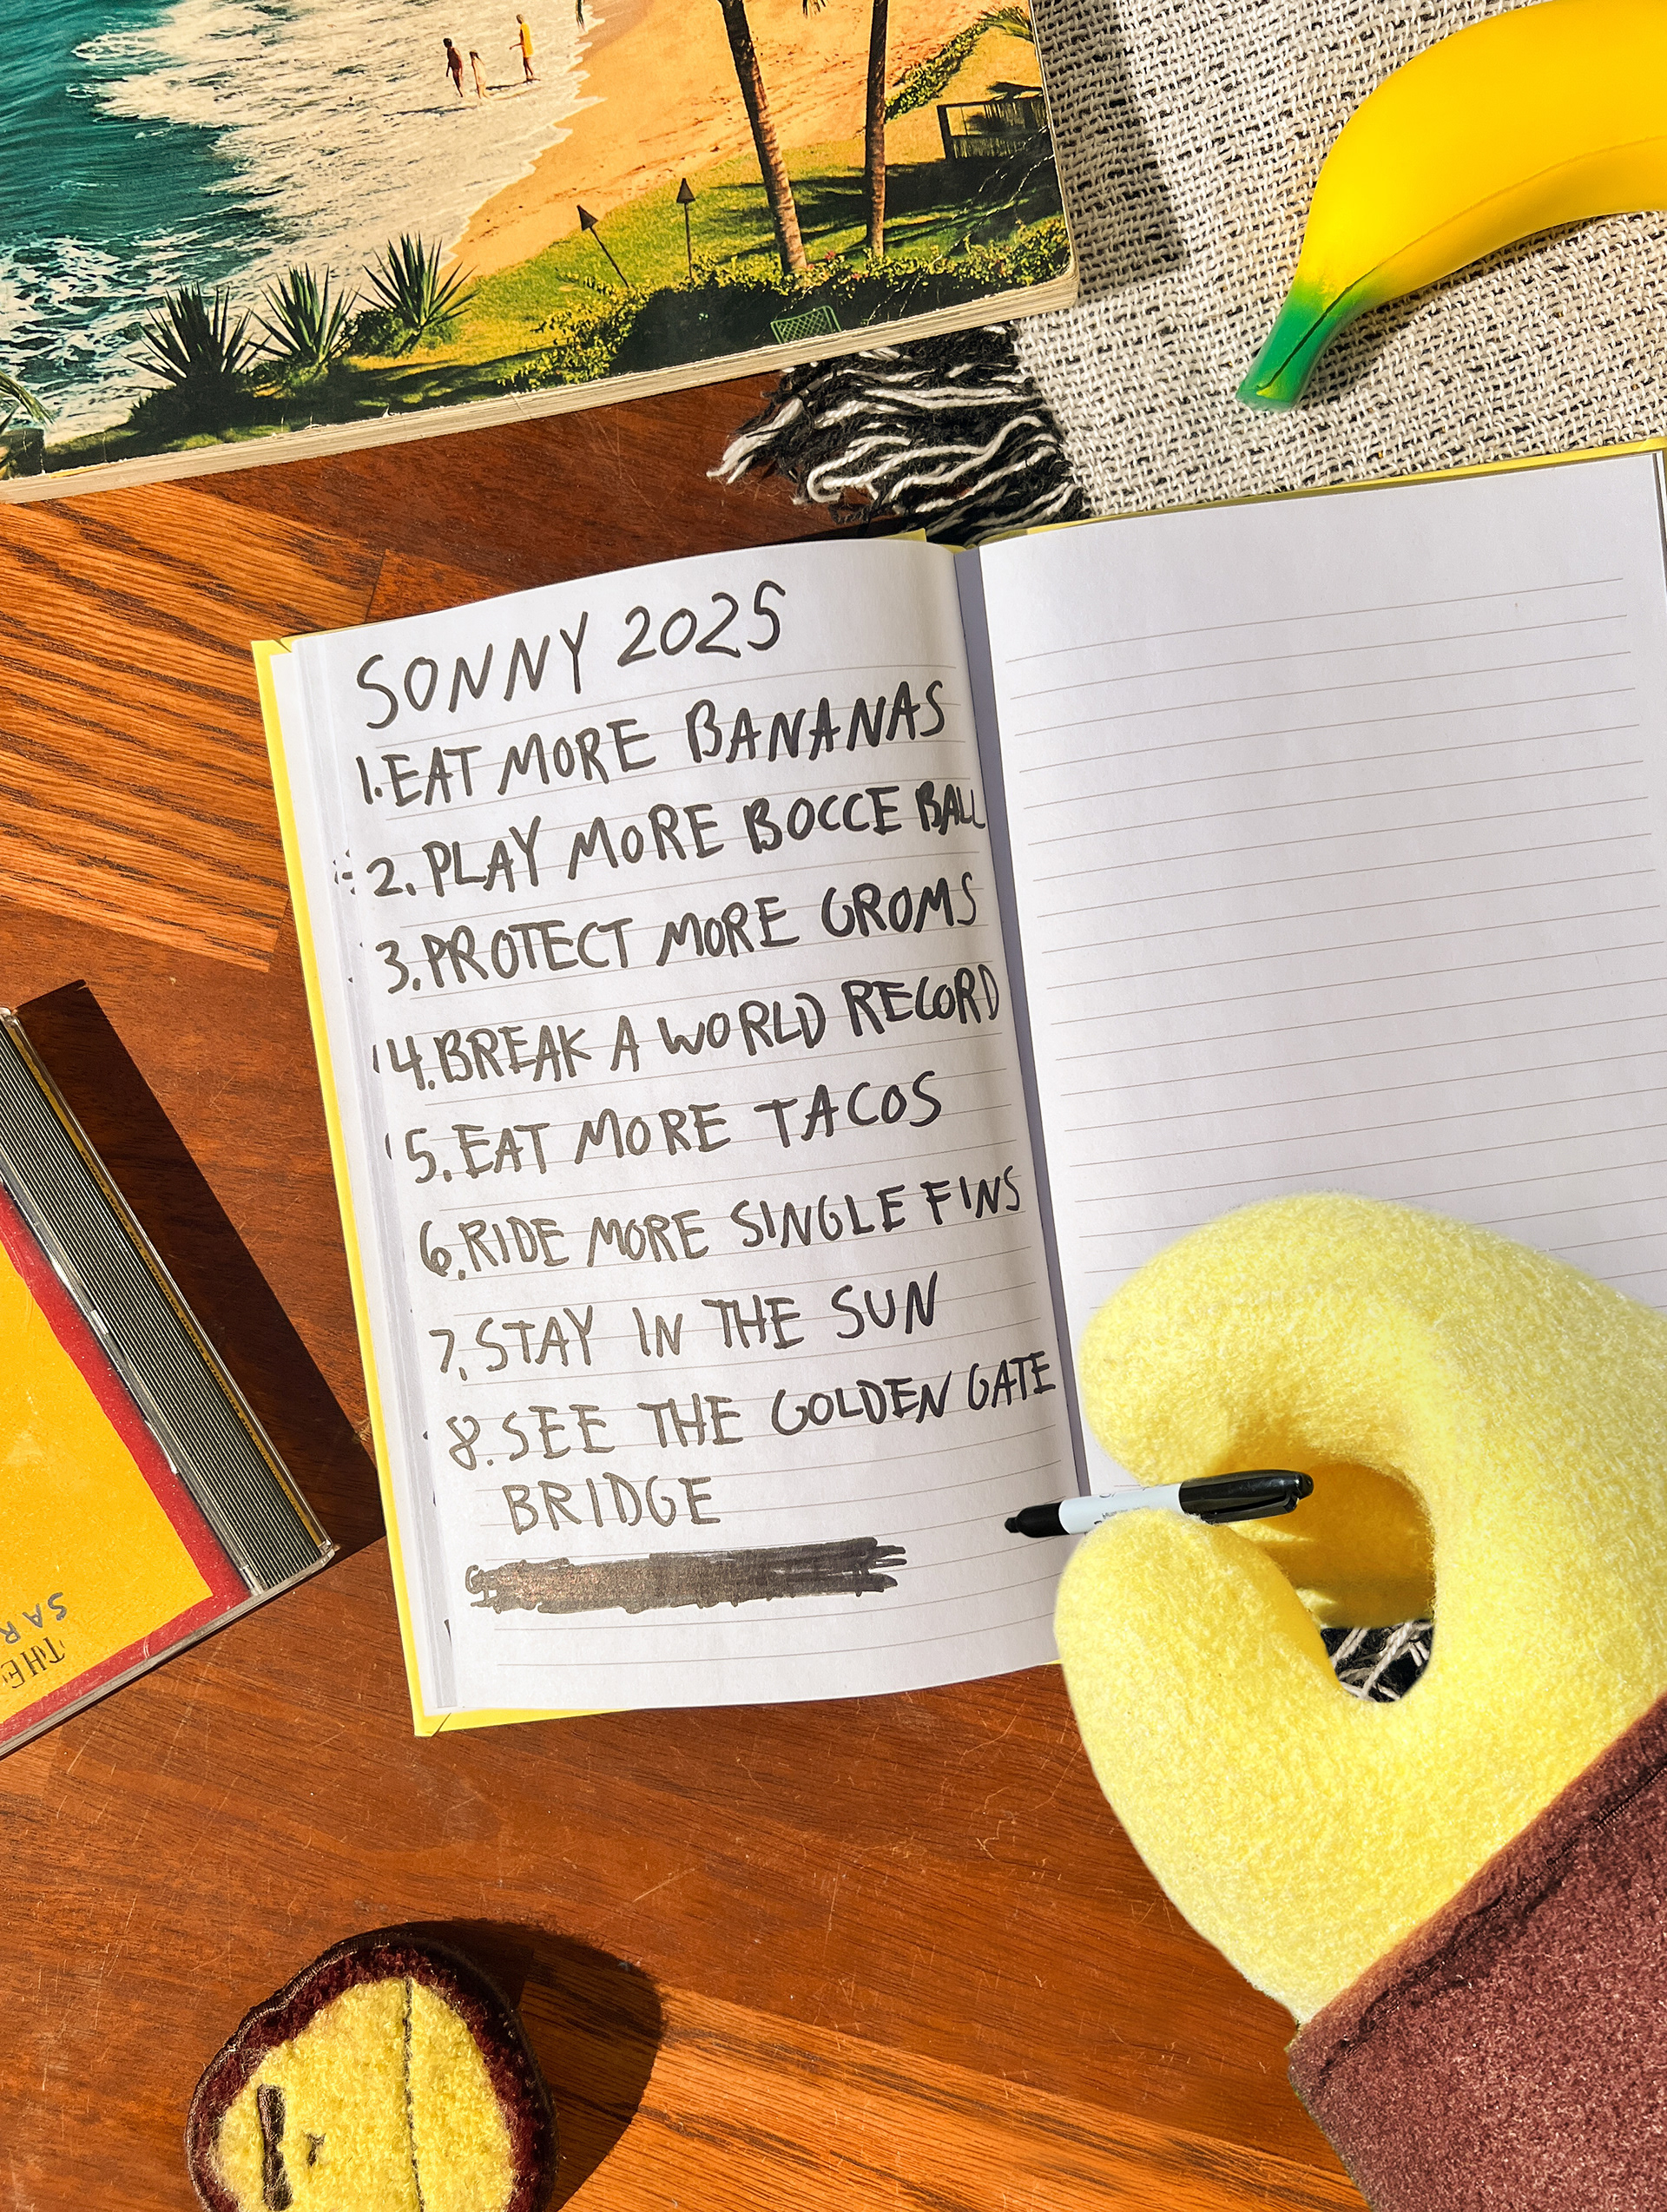 SONNY 2025
1. EAT MORE BANANAS
2. PLAY MORE BOCCE BALL
3. PROTECT MORE GROMS
4. BREAK A WORLD RECORD
5. EAT MORE TACOS
6. RIDE MORE SINGLE FINS
7. STAY IN THE SUN
8. SEE THE GOLDEN GATE
BRIDGE
THE
SAR